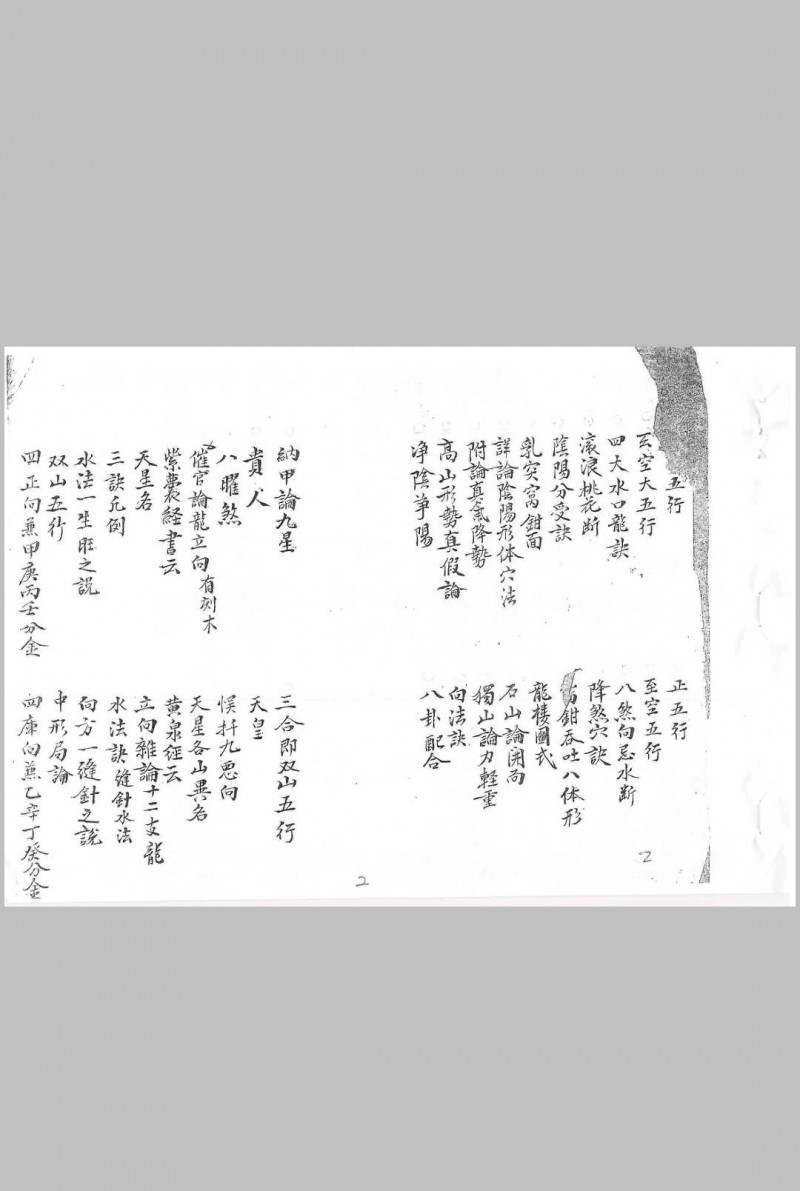 五行
玄空大五行
四大水口龍訣
滚浪桃花断
陰陽分受訣
乳突窩鉗面
詳論陰陽形体穴法
附論真氣降勢
高山形勢真假論
净陰争陽
正五行
至空五行
八煞向忌水断
降煞穴訣
鉗吞吐八体形
龍楼圖式
石山論開面
獨山論力輕重
向法訣
八卦配合
2
納甲論九星
貴人
八曜煞
催官論龍立向有刻木
紫囊経書云
天星名
三訣凡例
水法一生旺之説
双山五行
四正向兼甲庚丙壬分金
三合即双山五行
天皇
悮扦九思向
天星各山異名
黄泉経云
立向雜論十二支龍
水法訣缝針水法
向方一缝針之説
中形局論
四庫向兼乙辛丁癸分金
2